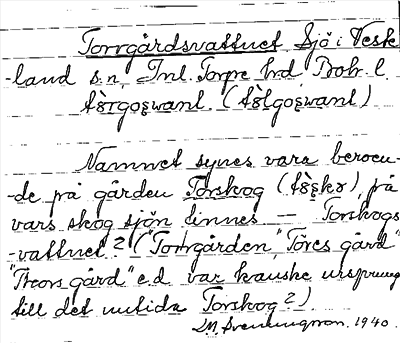 Torrgårdsvattnet Sjö i Vesk
-land s.n, Inl. Torpe hrd Boh. l.
Namnet synes vara beroen-
-de på gården Torskog (                ), på
vars skog sjön finnes — Torskogs
-vattnet? ("Torrgården", "Tores gård"
"Theors gård" e.d. var kanske ursprung
till det nutida Torskog?)
1940.